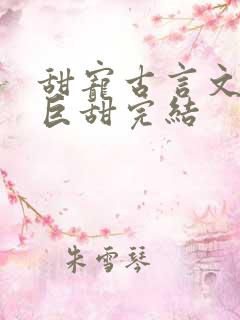 甜寵古言文
巨甜完結
朱雪琴